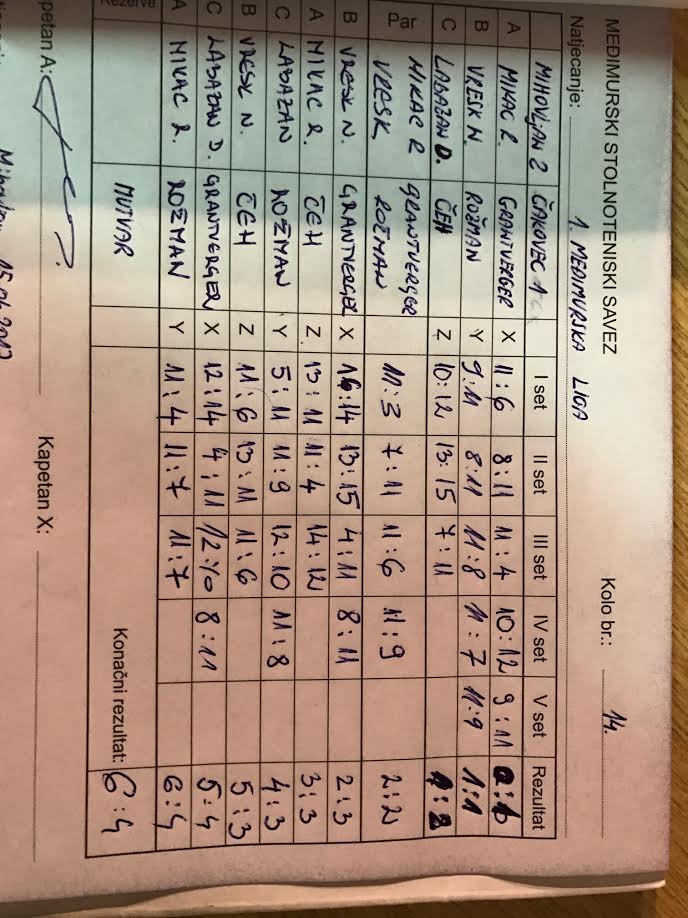 MEĐIMURSKI STOLNOTENISKI SAVEZ
Natjecanje: 1. MEĐIMURSKA LIGA Kolo br.: 14.
MIHOVLJAN 2 ČAKOVEC 1 I set II set III set IV set V set Rezultat
A MIKAC R. GRANTVERGER X 11:6 8:11 11:4 10:12 9:11 0:1
B VRESK N. ROŽMAN Y 9:11 8:11 11:8 11:7 11:9 1:1
C LABAZAN D. ČEH Z 10:12 13:15 7:11 1:2
Par MIKAC R GRANTVERGER
VRESK ROŽMAN 11:3 7:11 11:6 11:9 2:2
B VRESK N. GRANTVERGER X 16:14 13:15 4:11 8:11 2:3
A MIKAC R. ČEH Z 13:11 11:4 14:12 3:3
C LABAZAN ROŽMAN Y 5:11 11:9 12:10 11:8 4:3
B VRESK N. ČEH Z 11:6 13:11 11:6 5:3
C LABAZAN D. GRANTVERGER X 12:14 4:11 12:10 8:11 5:4
A MIKAC R. ROŽMAN Y 11:4 11:7 11:7 6:4
Rezerve MUTVAR Konačni rezultat: 6:4
petan A: Kapetan X: